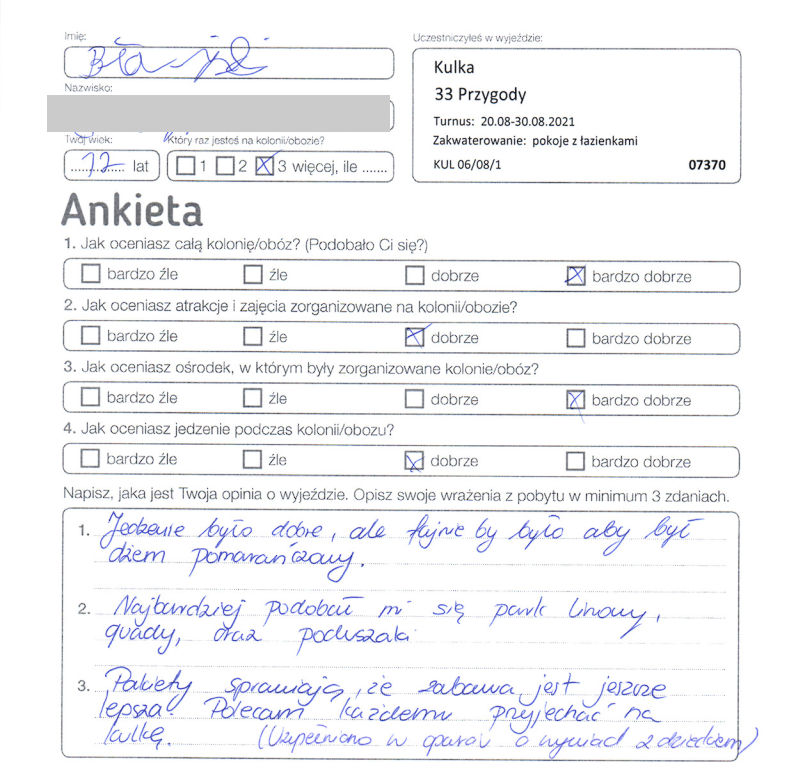 Imię:
Błażej
Nazwisko:
Twój wiek:
Który raz jesteś na kolonii/obozie?
12 lat
1 2 3 więcej, ile .......
Uczestniczyłeś w wyjeździe:
Kulka
33 Przygody
Turnus: 20.08-30.08.2021
Zakwaterowanie: pokoje z łazienkami
KUL 06/08/1 07370
Ankieta
1. Jak oceniasz całą kolonię/obóz? (Podobało Ci się?)
bardzo źle źle dobrze bardzo dobrze
2. Jak oceniasz atrakcje i zajęcia zorganizowane na kolonii/obozie?
bardzo źle źle dobrze bardzo dobrze
3. Jak oceniasz ośrodek, w którym były zorganizowane kolonie/obóz?
bardzo źle źle dobrze bardzo dobrze
4. Jak oceniasz jedzenie podczas kolonii/obozu?
bardzo źle źle dobrze bardzo dobrze
Napisz, jaka jest Twoja opinia o wyjeździe. Opisz swoje wrażenia z pobytu w minimum 3 zdaniach.
1. Jedzenie było dobre, ale fajnie by było aby był
dżem pomarańczowy.
2. Najbardziej podobał mi się park linowy,
quady, oraz poduszaki
3. Pakiety sprawiają, że zabawa jest jeszcze
lepsza! Polecam każdemu przyjechać na
kulkę. (Uzupełniono w oparciu o wywiad z dzieckiem)